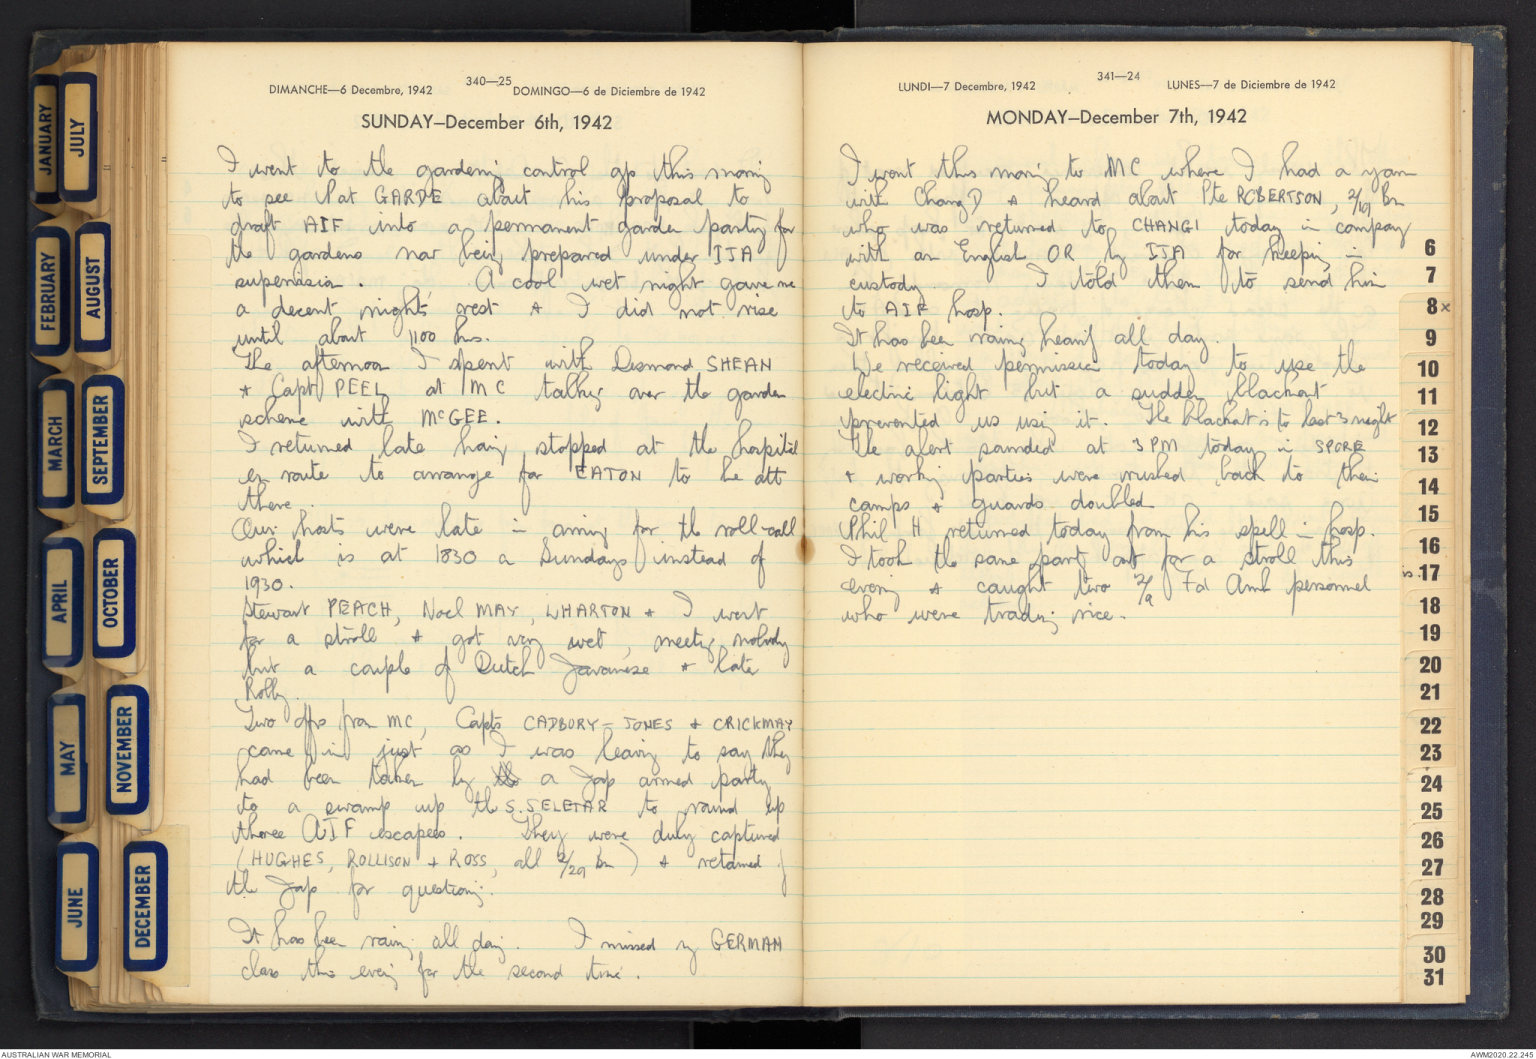 JANUARY
JULY
FEBRUARY
AUGUST
MARCH
SEPTEMBER
APRIL
OCTOBER
MAY
NOVEMBER
JUNE
DECEMBER
340—25
DIMANCHE—6 Decembre, 1942
DOMINGO—6 de Diciembre de 1942
SUNDAY—December 6th, 1942
I went to the gardening control gp this morning
to see Pat GARDE about his proposal to
draft AIF into a permanent garden party for
the gardens now being prepared under IJA
supervision. A cool wet night gave me
a decent nights rest & I did not rise
until about 1100 hrs.
The afternoon I spent with Desmond SHEAN
& Capt PEEL at MC talking over the garden
scheme with McGEE.
I returned late having stopped at the hospital
en route to arrange for EATON to be att
there.
Our hosts were late in arriving for the roll-call
which is at 1830 on Sundays instead of
1930.
Stewart PEACH, Noel MAY, WHARTON & I went
for a stroll & got very wet, meeting nobody
but a couple of Dutch Javanese & late
Rolly.
Two offrs from MC, Capts CADBURY-JONES & CRICKMAY
came in just as I was leaving to say they
had been taken by a Jap armed party
to a swamp up the S. SELETAR to round up
three AIF escapees. They were duly captured
(HUGHES, ROLLISON & ROSS, all 2/29 Bn) & retained by
the Jap for questioning.
It has been raining all day. I missed my GERMAN
class this evening for the second time.
341—24
LUNDI—7 Decembre, 1942
LUNES—7 de Diciembre de 1942
MONDAY—December 7th, 1942
I went this morning to MC where I had a yarn
with Chang D & heard about Pte ROBERTSON, 2/19 Bn
who was returned to CHANGI today in company
with an English OR by IJA for keeping in
custody. I told them to send him
to AIF hosp.
It has been raining heavily all day.
We received permission today to use the
electric light but a sudden blackout
prevented us using it. The blackout is to last 3 nights
The alert sounded at 3 PM today in SPORE
& working parties were rushed back to their
camps & guards doubled
Phil H returned today from his spell in hosp.
I took the same party out for a stroll this
evening & caught two 2/9 Fd Amb personnel
who were trading rice.
6
7
8x
9
10
11
12
13
14
15
16
17
18
19
20
21
22
23
24
25
26
27
28
29
30
31
AUSTRALIAN WAR MEMORIAL
AWM2020.22.245